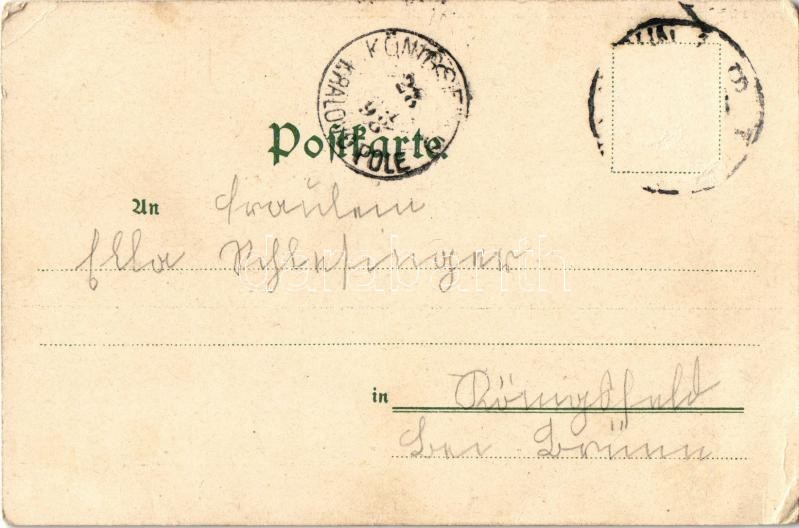 KÖNIGSFELD
KRALOVO POLE
Postkarte.
An Fräulein
Ella Schlesinger
in Königsfeld
bei Brünn
darabanth